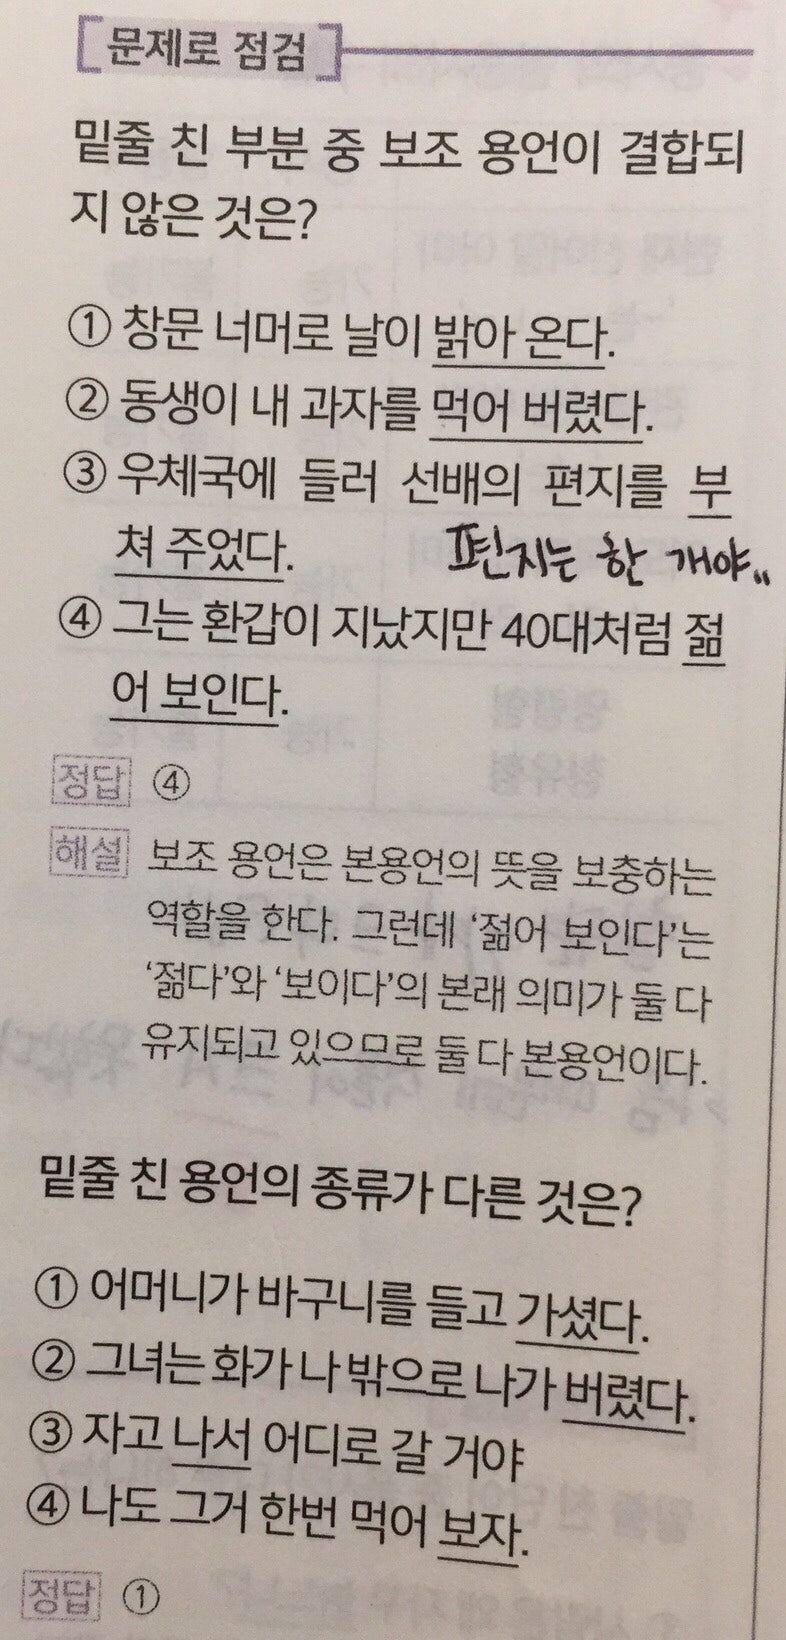 문제로 점검
밑줄 친 부분 중 보조 용언이 결합되
지 않은 것은?
① 창문 너머로 날이 밝아 온다.
② 동생이 내 과자를 먹어 버렸다.
③ 우체국에 들러 선배의 편지를 부
쳐 주었다. 편지는 한 개야..
④ 그는 환갑이 지났지만 40대처럼 젊
어 보인다.
정답 ④
해설 보조 용언은 본용언의 뜻을 보충하는
역할을 한다. 그런데 ‘젊어 보인다’는
‘젊다’와 ‘보이다’의 본래 의미가 둘 다
유지되고 있으므로 둘 다 본용언이다.
밑줄 친 용언의 종류가 다른 것은?
① 어머니가 바구니를 들고 가셨다.
② 그녀는 화가 나 밖으로 나가 버렸다.
③ 자고 나서 어디로 갈 거야
④ 나도 그거 한번 먹어 보자.
정답 ①